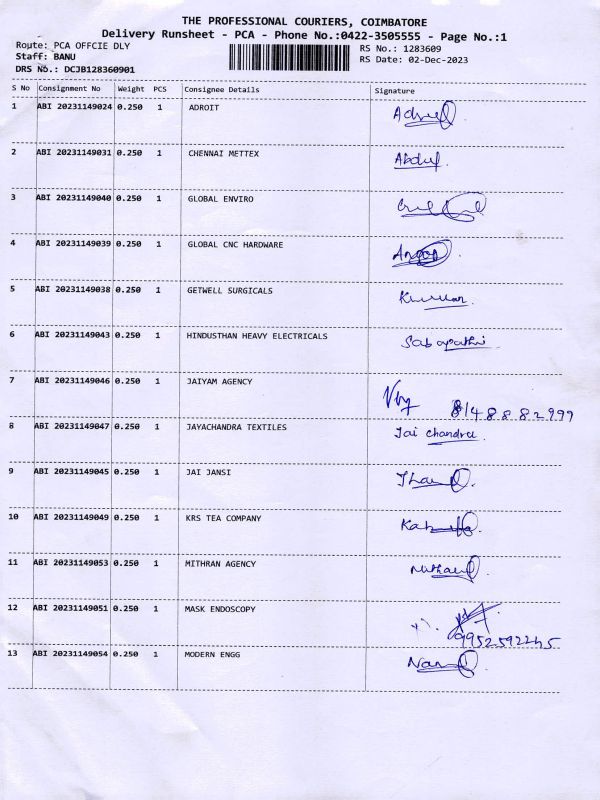 THE PROFESSIONAL COURIERS, COIMBATORE
Delivery Runsheet - PCA - Phone No.:0422-3505555 - Page No.:1
Route: PCA OFFCIE DLY
RS No.: 1283609
Staff: BANU
RS Date: 02-Dec-2023
DRS No.: DCJB128360901
S No Consignment No Weight PCS Consignee Details Signature
1 ABI 20231149024 0.250 1 ADROIT
2 ABI 20231149031 0.250 1 CHENNAI METTEX Abdul
3 ABI 20231149040 0.250 1 GLOBAL ENVIRO
4 ABI 20231149039 0.250 1 GLOBAL CNC HARDWARE
5 ABI 20231149038 0.250 1 GETWELL SURGICALS
6 ABI 20231149043 0.250 1 HINDUSTHAN HEAVY ELECTRICALS Sabapathi
7 ABI 20231149046 0.250 1 JAIYAM AGENCY 8148882999
8 ABI 20231149047 0.250 1 JAYACHANDRA TEXTILES Jai chandru
9 ABI 20231149045 0.250 1 JAI JANSI
10 ABI 20231149049 0.250 1 KRS TEA COMPANY
11 ABI 20231149053 0.250 1 MITHRAN AGENCY
12 ABI 20231149051 0.250 1 MASK ENDOSCOPY 9952592245
13 ABI 20231149054 0.250 1 MODERN ENGG